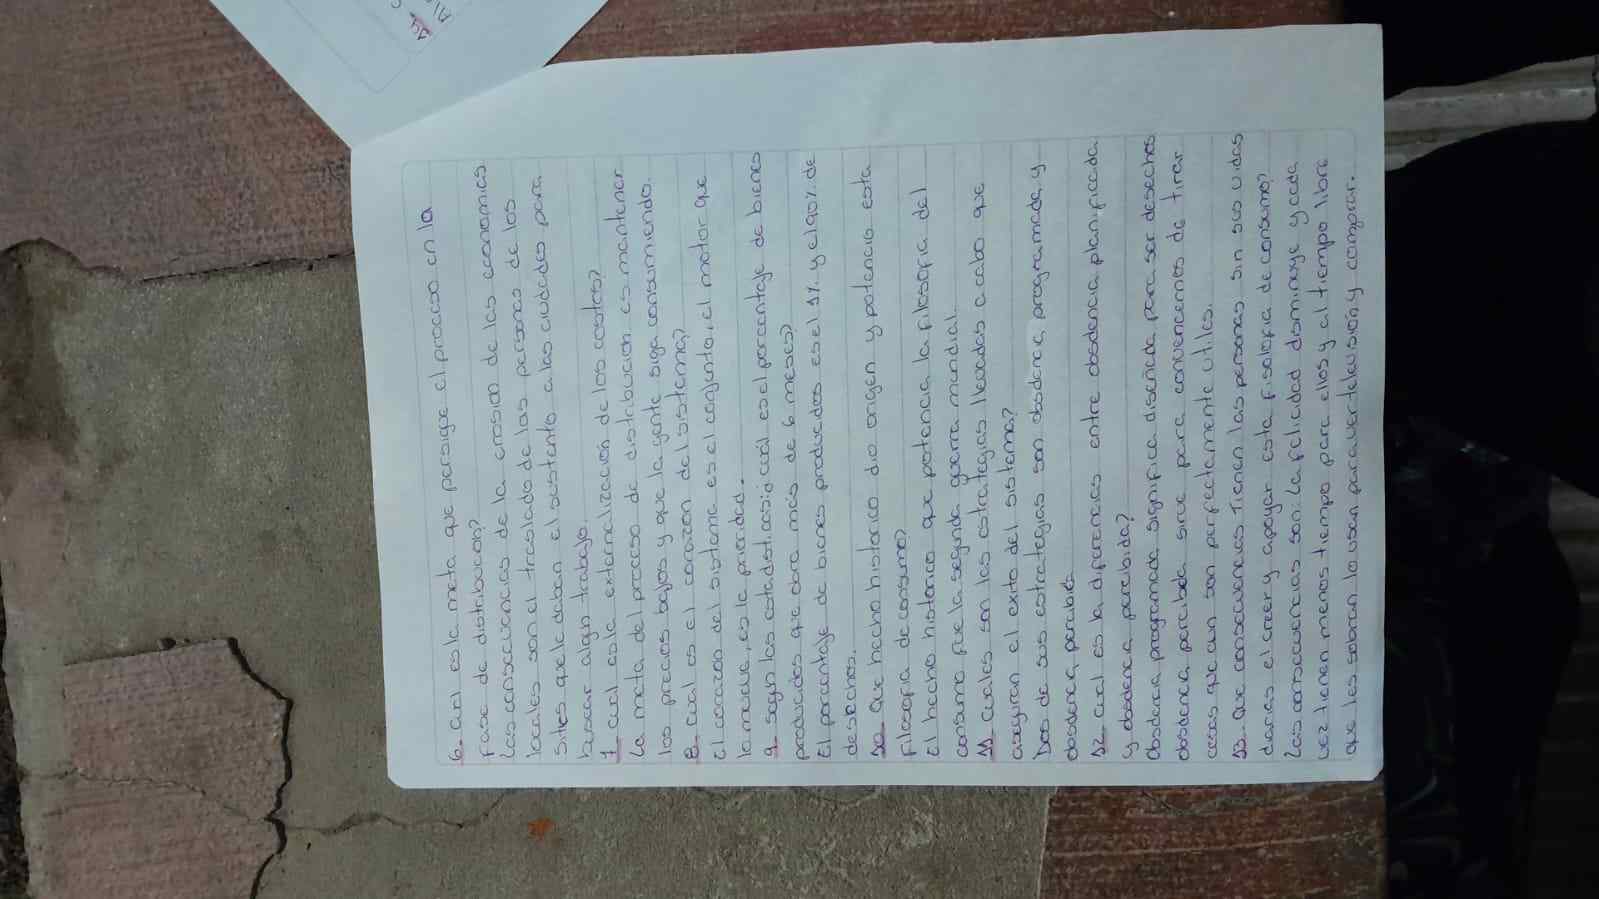 6- cual es la meta que persigue el proceso en la
fase de distribución?
Las consecuencias de la erosion de las economias
locales son el traslado de las personas de los
sities que le daban el sustento a las ciudades para
buscar algun trabajo.
7 cual es la externalización de los costos?
La meta del proceso de distribucion es mantener
los precios bajos y que la gente siga consumiendo.
8- cual es el corazón del sistema?
El corazon del sistema es el conjunto, el motor que
lo mueve, es la prioridad.
9- segun las estadisticas cuál es el porcentaje de bienes
producidos que dura más de 6 meses?
El porcentaje de bienes producidos es el 1% y el 90% de
desechos.
10- que hecho historico dio origen y potencia esta
filosofia de consumo?
El hecho historico que potencia la filosofia del
consumo fue la segunda guerra mundial.
11- cuales son las estrategias llevadas a cabo que
aseguran el exito del sistema?
Dos de sus estrategias son obsdencia programada y
obsdencia percibida
12- cual es la diferencias entre obsdencia planificada
y obsdencia percibida?
Obsdencia programada significa diseñada para ser desechos
obsdencia percibida sirve para convencernos de tirar
cosas que aun son perfectamente utiles.
13- que consecuencias Tienen las personas sin sus vidas
darias el creer y apoyar esta fisolofia de consumo?
Las consecuencias son: La felicidad disminuye y cada
vez tienen menos tiempo para ellos y al tiempo libre
que les sobran lo usan para ver telvusión y comprar.